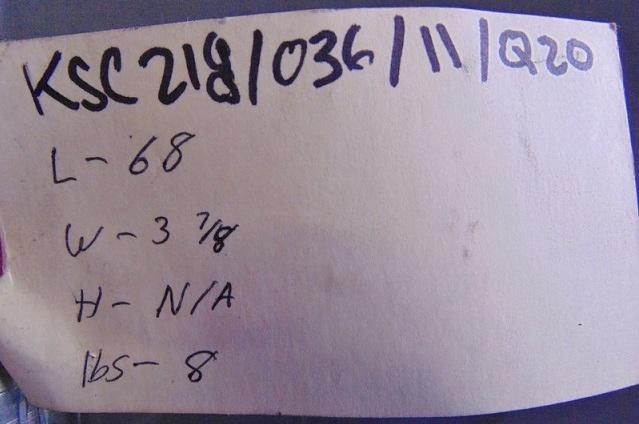 KSC218/036/11/Q20
L- 68
W- 3 7/8
H- N/A
lbs- 8